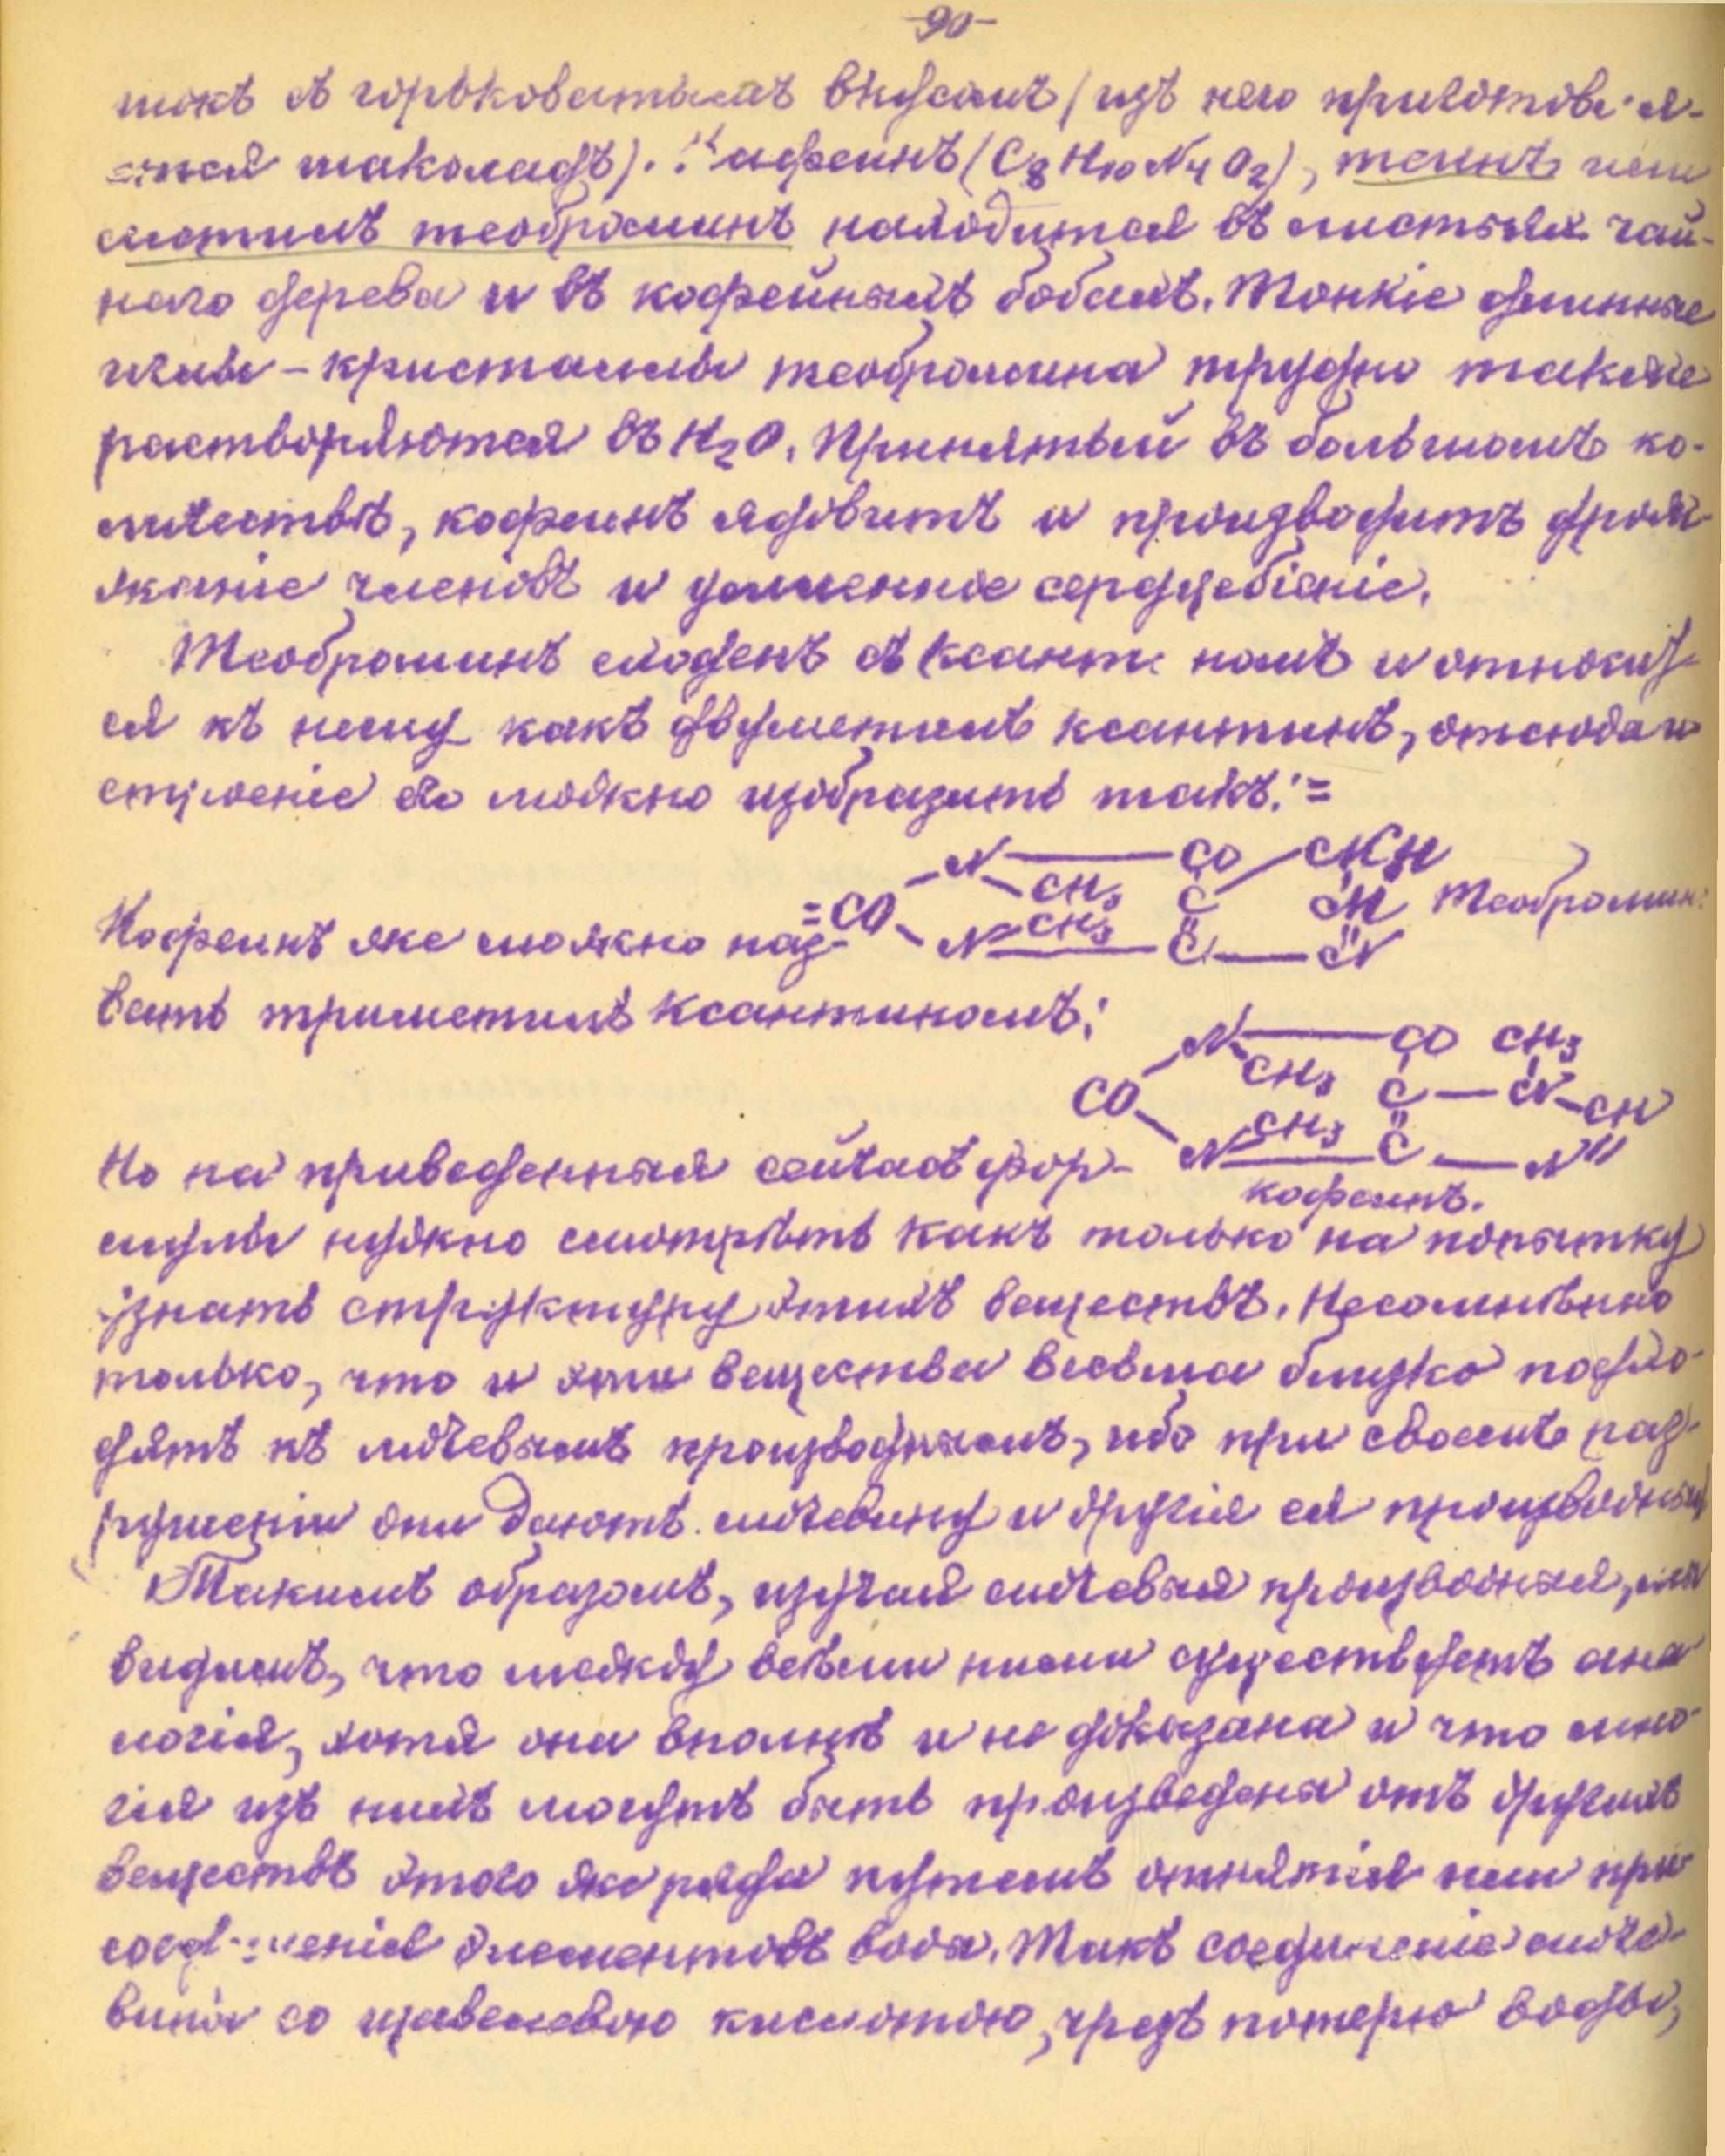 -90-
шокъ съ горьковатымъ вкусомъ (изъ него приготовл.я-
ется шаколадъ). Кафеинъ (C8H10N4O2), теинъ или
метилъ теоброминъ находится въ листьяхъ чай-
наго дерева и въ кофейныхъ бобахъ. Тонкіе длинные
иглы - кристаллы теобромина трудно также
растворяются въ H2O. Принятый въ большомъ ко-
личествѣ, кофеинъ ядовитъ и производитъ дрож-
жаніе членовъ и усиленное сердцебіеніе.
Теоброминъ сходенъ съ ксант. номъ и относит-
ся къ нему какъ двуметилъ ксантинъ, отсюда и
строеніе его можно изобразить такъ: =
N — CO — CH
=CO CH3 C Теоброминъ
Кофеинъ же можно наз- N CH3 — C — N
вать триметилъ ксантиномъ:
N — CO CH3
CO CH3 C — N — CH
N CH3 — C — N
Но на приведенныя сейчасъ фор-
кофеинъ.
мулы нужно смотрѣть какъ только на попытку
узнать структуру этихъ веществъ. Несомнѣнно
только, что и эти вещества весьма близко подхо-
дятъ къ мочевымъ производнымъ, ибо при своемъ раз-
рушеніи они даютъ мочевину и другія ея производныя
Такимъ образомъ, изучая мочевыя производныя, мы
видимъ, что между всѣми ними существуетъ ана-
логія, хотя она вполнѣ и не доказана и что мно-
гія изъ нихъ могутъ быть произведены отъ другихъ
веществъ этого же ряда путемъ отнятія или при-
соединенія элементовъ воды. Такъ соединеніе моче-
вины со щавелевою кислотою, чрезъ потерю воды,